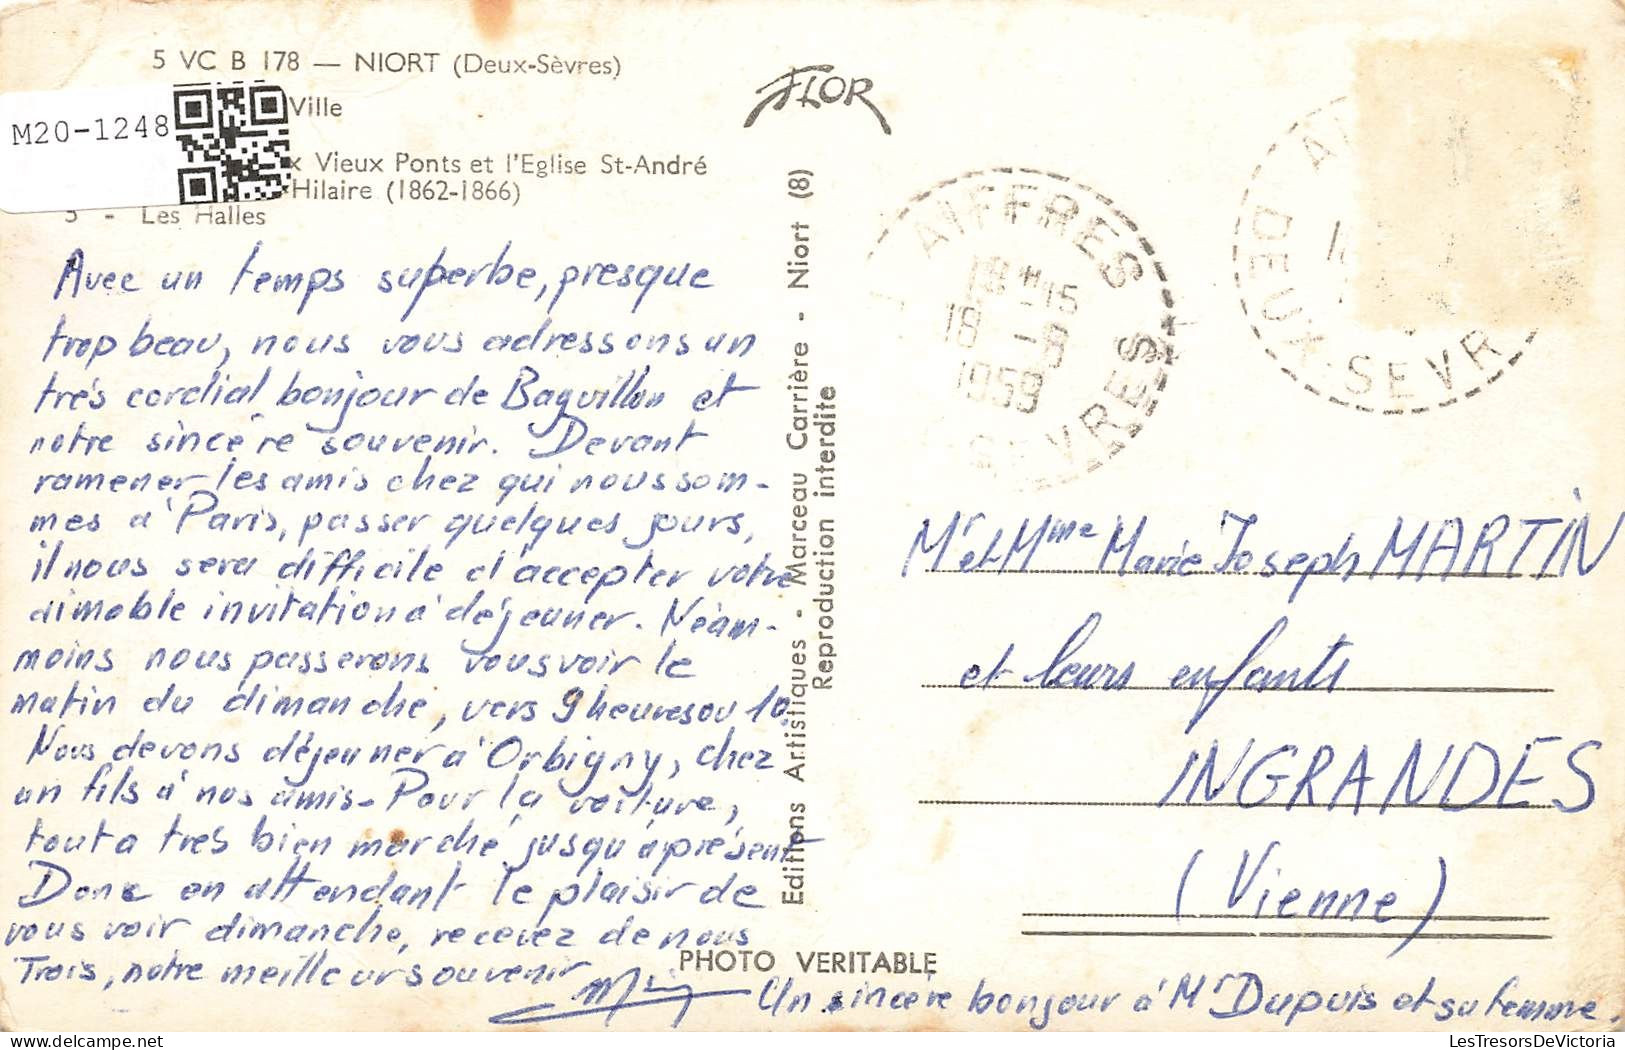 5 VC B 178 — NIORT (Deux-Sèvres)
Ville
M20-1248
x Vieux Ponts et l'Eglise St-André
-Hilaire (1862-1866)
5 - Les Halles
FLOR
Avec un temps superbe, presque
trop beau, nous vous adressons un
très cordial bonjour de Baguillon et
notre sincère souvenir. Devant
ramener les amis chez qui nous som-
mes à Paris, passer quelques jours,
il nous sera difficile d'accepter votre
aimable invitation à déjeuner. Néam-
moins nous passerons vous voir le
matin du dimanche, vers 9 heures ou 10.
Nous devons déjeuner à Orbigny, chez
un fils à nos amis. Pour la voiture,
tout a très bien marché jusqu'à présent
Donc en attendant le plaisir de
vous voir dimanche, recevez de nous
Trois, notre meilleur souvenir
Un sincère bonjour à Mr Dupuis et sa femme.
Editions Artistiques - Marceau Carrière - Niort (8)
Reproduction interdite
PHOTO VERITABLE
AIFFRES
18H15
18 -8
1959
SEVRES
DEUX-SEVR
Mr et Mme Marie Joseph MARTIN
et leurs enfants
INGRANDES
(Vienne)
LesTresorsDeVictoria